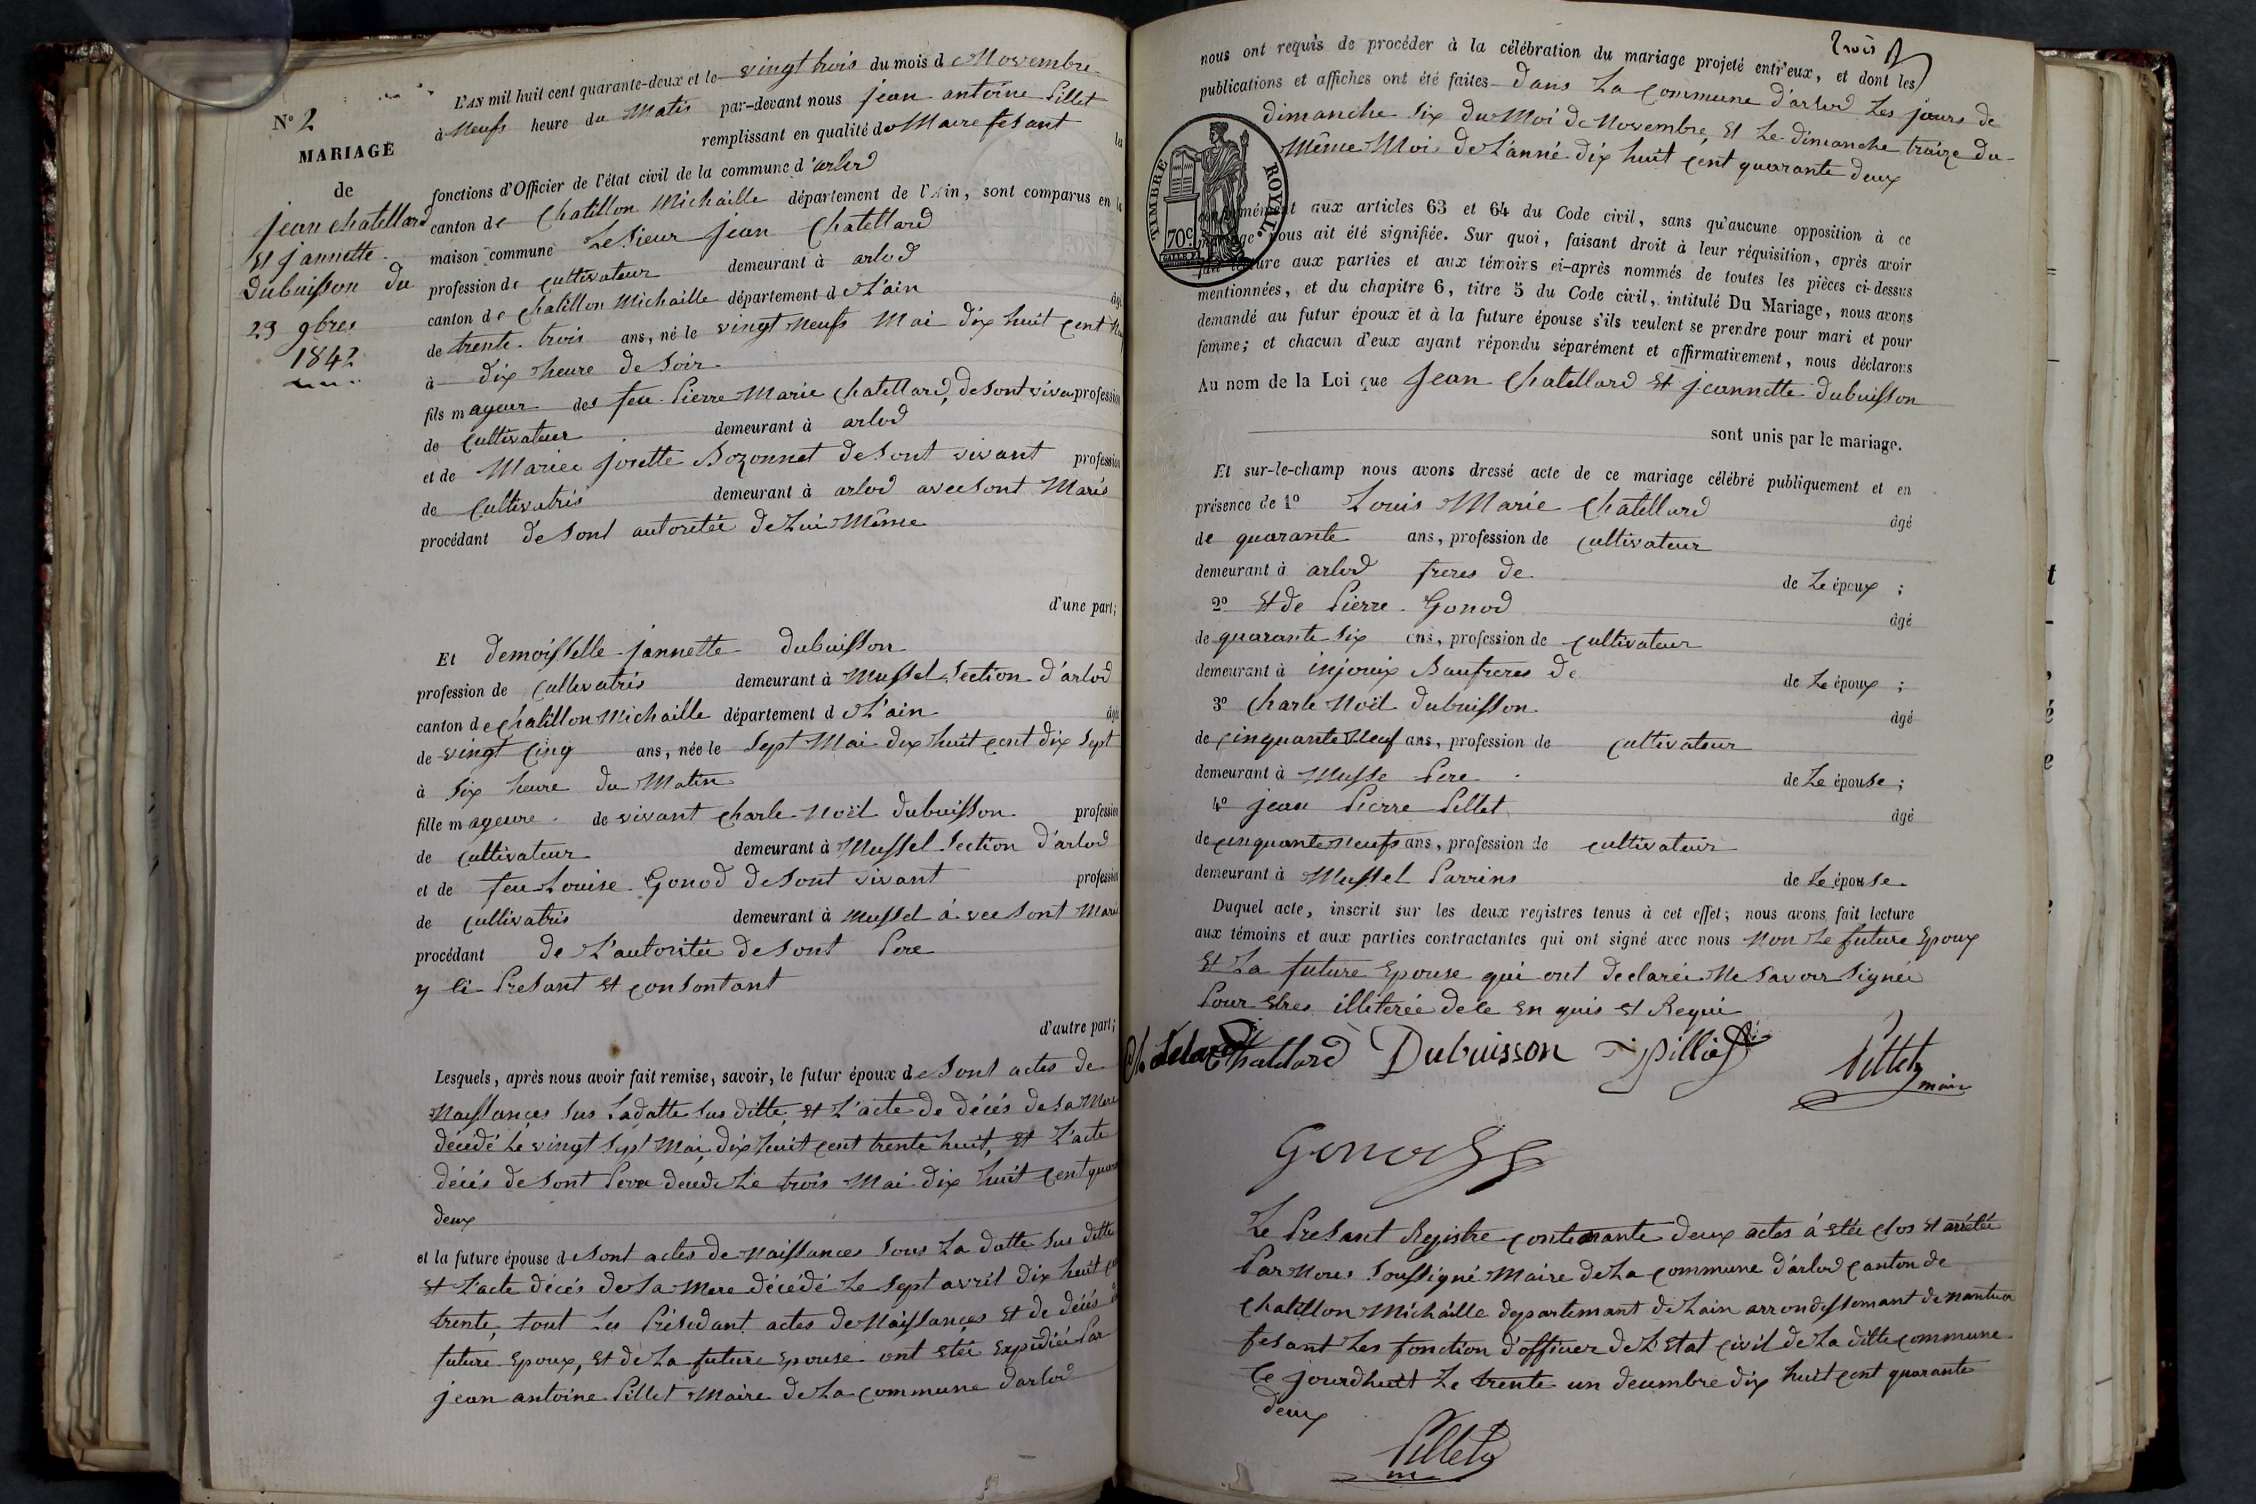 N.º 2
MARIAGE
de
jean chatellard
Et jannette
Dubuisson du
23 9bres
1842
L'AN mil huit cent quarante-deux et le vingt trois du mois de Novembre
à Neufs heure du Matis par-devant nous jean antoine Pillet
remplissant en qualité de Maire fesant les
fonctions d'Officier de l'état civil de la commune d'arlod
canton de Chatillon Michaille département de l'Ain, sont comparus en la
maison commune Le Sieur jean Chatellard
profession de cultivateur demeurant à arlod
canton de Chatillon Michaille département de L'ain âgé
de trente trois ans, né le vingt Neufs Mai dix huit cent
à dix heure de Soir
fils mageur des feu Pierre Marie Chatellard, de sont vivan profession
de Cultivateur demeurant à arlod
et de Mariee josette Bozonnet de sont vivant profession
de Cultivatris demeurant à arlod avec sont Maris
procédant de sont autoritée de Lui Même
d'une part;
Et demoisselle jannette dubuisson
profession de Cultivatris demeurant à Mussel Section d'arlod
canton de chatillon Michaille département de L'ain âgée
de vingt cinq ans, née le Sept Mai dix huit cent dix Sept
à Six heure du Matin
fille mageure de vivant charle Noël dubuisson profession
de cultivateur demeurant à Mussel Section d'arlod
et de feu Louise Gonod de sont vivant profession
de cultivatris demeurant à Mussel avec sont Mari
procédant de L'autoritée de sont Pere
y ci Presant et consontant
d'autre part;
Lesquels, après nous avoir fait remise, savoir, le futur époux de sont actes de
Naissances sus Ladatte sus ditte, et L'acte de décés de sa Mere
décédé Le vingt Sept Mai dix huit cent trente huit, et L'acte
décés de sont Pere décédé Le trois Mai dix huit cent quarante
deux
et la future épouse de sont actes de naissances sous La datte sus ditte
et L'acte décés de sa Mere décédé Le Sept avril dix huit cent
trente, tout Les Présedant actes de Naissances et de décés
future Epoux, et de La future Epouse ont etée Expédiée Par
jean antoine Pillet Maire de La commune darlod
trois
nous ont requis de procéder à la célébration du mariage projeté entr'eux, et dont les
publications et affiches ont été faites dans La Commune d'arlod Les jours de
dimanche Six du Moi de Novembre, et Le dimanche traize du
Même Moi de L'anné dix huit cent quarante deux
TIMBRE ROYAL.
70c
conformément aux articles 63 et 64 du Code civil, sans qu'aucune opposition à ce
mariage nous ait été signifiée. Sur quoi, faisant droit à leur réquisition, après avoir
fait lecture aux parties et aux témoins ci-après nommés de toutes les pièces ci-dessus
mentionnées, et du chapitre 6, titre 5 du Code civil, intitulé Du Mariage, nous avons
demandé au futur époux et à la future épouse s'ils veulent se prendre pour mari et pour
femme; et chacun d'eux ayant répondu séparément et affirmativement, nous déclarons
Au nom de la Loi que jean Chatellard et jeannette dubuisson
sont unis par le mariage.
Et sur-le-champ nous avons dressé acte de ce mariage célébré publiquement et en
présence de 1º Louis Marie Chatellard âgé
de quarante ans, profession de cultivateur
demeurant à arlod freres de de Le époux;
2º et de Pierre Gonod âgé
de quarante Six ans, profession de cultivateur
demeurant à injoux Baufreres de de Le époux;
3º Charle Noël dubuisson âgé
de cinquante Neuf ans, profession de cultivateur
demeurant à Musse Pere de Le épouse;
4º jean Pierre Pillet âgé
de cinquante Neufs ans, profession de cultivateur
demeurant à Mussel Parrins de Le épouse.
Duquel acte, inscrit sur les deux registres tenus à cet effet; nous avons fait lecture
aux témoins et aux parties contractantes qui ont signé avec nous Non Le future Epoux
et La future Epouse qui ont declarée Ne savoir Signée
Pour Etres illiterée dele En quis et Requi
Dubuisson Pillet
Pillet maire
Gonod
Le Presant Registre contenante deux actes à etée clos et arretée
Par Nous Soussigné Maire de La commune d'arlod canton de
Chatillon Michaille departemant de Lain arrondissemant de nantua
fesant Les fonction d'officier de L'Etat civil de La ditte commune
Ce jourdhuit Le trente un decembre dix huit cent quarante
deux
Pillet
m